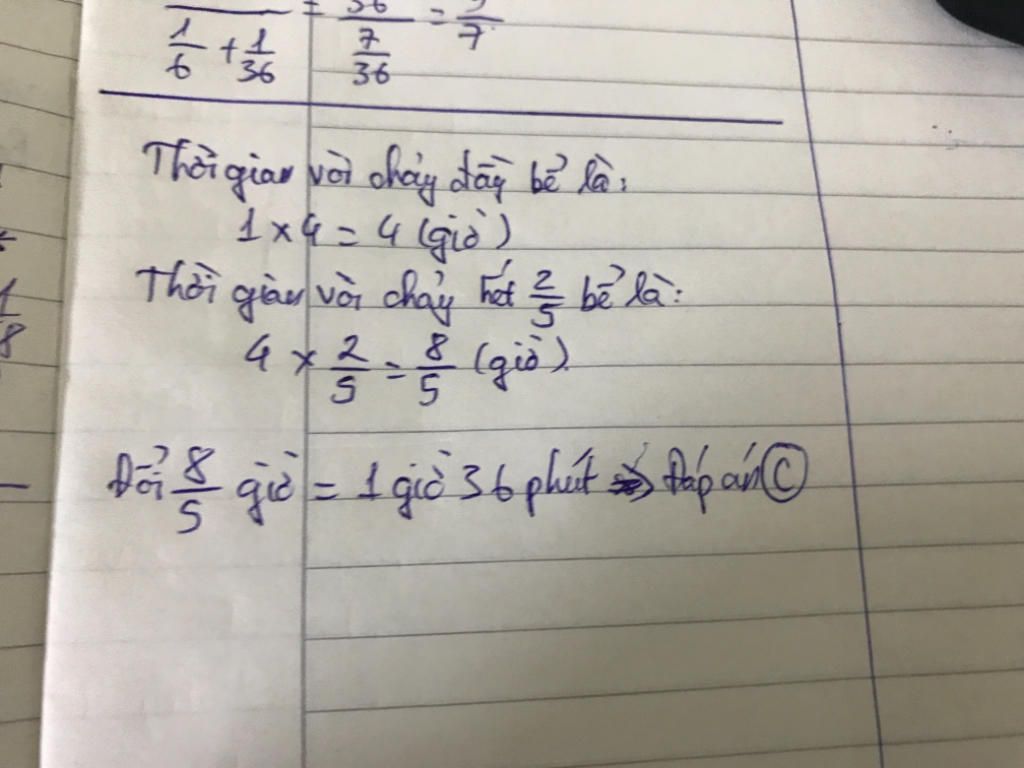 1/6 + 1/36 = 7/36 = 7
Thời gian vòi chảy đầy bể là:
1 x 4 = 4 (giờ)
Thời gian vòi chảy hết 2/5 bể là:
4 x 2/5 = 8/5 (giờ).
Đổi 8/5 giờ = 1 giờ 36 phút => Đáp án C